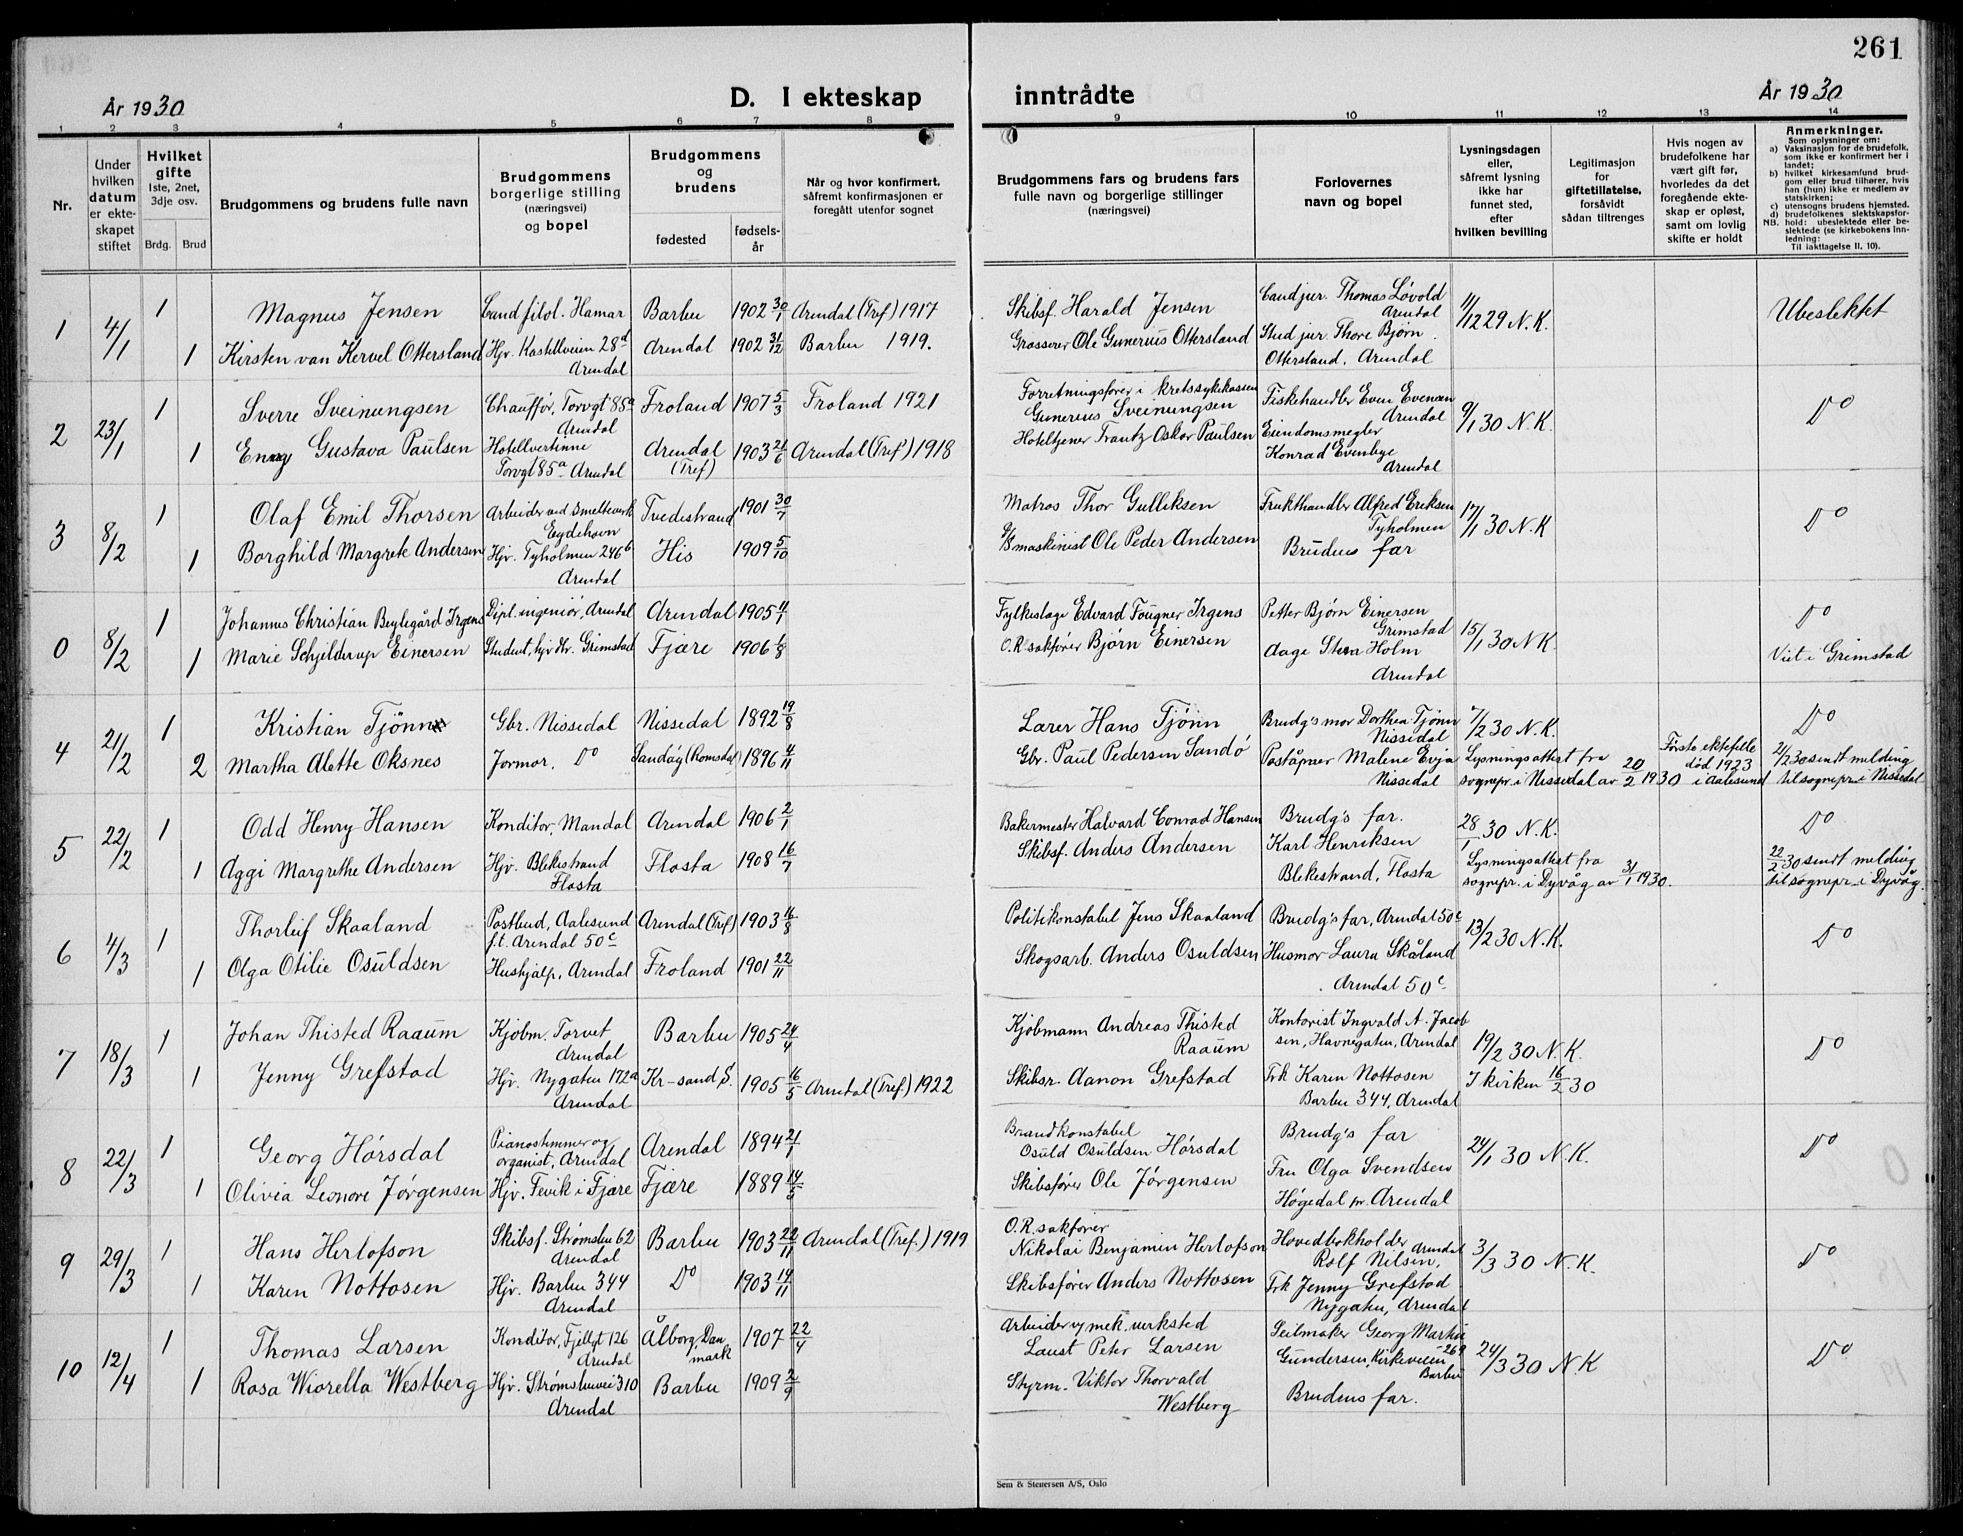 261
År 1930
D. I ekteskap inntrådte
År 1930
1 2 3 4 5 6 7 8 9 10 11 12 13 14
Nr.
Under hvilken datum er ekteskapet stiftet
Hvilket gifte
1ste, 2net, 3dje osv.
Brdg. Brud
Brudgommens og brudens fulle navn
Brudgommens borgerlige stilling (næringsvei) og bopel
Brudgommens og brudens
fødested
fødselsår
Når og hvor konfirmert, såfremt konfirmasjonen er foregått utenfor sognet
Brudgommens fars og brudens fars fulle navn og borgerlige stillinger (næringsvei)
Forlovernes navn og bopel
Lysningsdagen eller, såfremt lysning ikke har funnet sted, efter hvilken bevilling
Legitimasjon for giftetillatelse, forsåvidt sådan tiltrenges
Hvis nogen av brudefolkene har vært gift før, hvorledes da det foregående ekteskap er opløst, samt om lovlig skifte er holdt
Anmerkninger.
Som oplysninger om:
a) Vaksinasjon for de brudefolk, som ikke er konfirmert her i landet;
b) hvilket kirkesamfund brudgom eller brud tilhører, hvis han (hun) ikke er medlem av statskirken;
c) utensogns brudens hjemsted.
d) brudefolkenes slektskapsforhold: ubeslektede eller beslektede (se kirkebokens innledning:
NB.
Til iakttagelse II. 10).
1 4/1 1 Magnus Jensen Cand filol. Hamar Barbu 1902 30/1 Arendal (Tref) 1917 Skibsf. Harald Jensen Cand jur. Thomas Løvold Arendal 11/12 29 N.K. Ubeslektet
1 Kirsten van Kervel Ottersland Hjv. Kastellveien 28d Arendal Arendal 1902 31/12 Barbu 1919. Grosserer Ole Gunerius Ottersland Stud jur. Thore Bjørn Ottersland. Arendal
2 23/1 1 Sverre Sveinungsen Chauffør, Torvgt 85a Arendal Froland 1907 5/3 Froland 1921 Forretningsfører i kretssykekassen Gunerius Sveinungsen Fiskehandler Even Evensen Arendal 9/1 30 N.K. Do
1 Enny Gustava Paulsen Hotellvertinne Torvgt 85a Arendal Arendal (Tref) 1903 21/6 Arendal (Tref) 1918 Hoteltjener Frantz Oskar Paulsen Eiendomsmegler Konrad Evenbye Arendal
3 8/2 1 Olaf Emil Thorsen Arbeider ved Smelteverk Eydehavn Tvedestrand 1901 30/7 Matros Thor Gulliksen Frukthandler Alfred Eriksen Tyholmen 17/1 30 N.K Do
1 Borghild Margrete Andersen Hjv. Tyholmen 246b Arendal His 1909 5/10 maskinist Ole Peder Andersen Brudens far
0 8/2 1 Johannes Christian Beylegård Irgens Dipl. ingeniør, Arendal Arendal 1905 11/1 Fylkeslæge Edvard Fougner Irgens Petter Bjørn Einersen Grimstad 15/1 30 N.K. Do
1 Marie Schjelderup Einersen Student, hjv Hr. Grimstad Fjære 1906 1/8 O.R. sakfører Bjørn Einersen Aage Sten Holm Arendal Viet i Grimstad
4 21/2 1 Kristian Tjønn Gbr. Nissedal Nissedal 1892 19/8 Lærer Hans Tjønn Brudg's mor Dorthea Tjønn Nissedal 7/2 30 N.K. Do
2 Martha Alette Oksnes Jormor. Do Sandøy (Romsdal) 1896 4/11 Gbr. Paul Pedersen Sandø Poståpner Malene Evja Nissedal Lysningsattest fra sognepr. i Nissedal av 20/2 1930 Første ektefelle død 1923 i Aalesund 21/2 30 sendt melding til sognepr. i Nissedal
5 22/2 1 Odd Henry Hansen Konditor, Mandal Arendal 1906 2/1 Bakermester Halvard Conrad Hansen Brudg's far. 28/1 30 N.K. Do
1 Aggi Margrethe Andersen Hjv. Blekestrand Flosta Flosta 1908 16/7 Skibsf. Anders Andersen Karl Henriksen Blekestrand, Flosta Lysningsattest fra sognepr. i Dyvåg av 31/1 1930. 22/2 30 sendt melding til sognepr. i Dyvåg.
6 4/3 1 Thorleif Skaaland Postbud, Aalesund f.t. Arendal 50c Arendal (Tref) 1903 16/8 Politikonstabel Jens Skaaland Brudg's far, Arendal 50c 13/2 30 N.K. Do
1 Olga Otilie Osuldsen Hushjælp, Arendal Froland 1901 22/11 Skogsarb. Anders Osuldsen Husmor Laura Skåland Arendal 50c
7 18/3 1 Johan Thisted Raaum Kjøbm. Torvet Arendal Barbu 1905 24/4 Kjøbmann Andreas Thisted Raaum Kontorist Ingvald A. Jacobsen, Havnegaten, Arendal 19/2 30 N.K. Do
1 Jenny Grefstad Hjv. Nygaten 172a Arendal Kr-sand S. 1905 16/5 Arendal (Tref) 1922 Skibsr. Aanon Grefstad Frk Karen Nottosen Barbu 344, Arendal I kirken 16/2 30
8 22/3 1 Georg Hørsdal Pianostemmer og organist, Arendal Arendal 1894 21/1 Brandkonstabel Osuld Osuldsen Hørsdal Brudg's far 24/1 30 N.K. Do
1 Olivia Leonore Jørgensen Hjv. Fevik i Fjære Fjære 1889 14/3 Skibsfører Ole Jørgensen Fru Olga Svendsen Høgedal pr. Arendal
9 29/3 1 Hans Herlofson Skibsf. Strømsbu 62 Arendal Barbu 1903 22/11 Arendal (Tref.) 1919 O.R. sakfører Nikolai Benjamin Herlofson Hovedbokholder Rolf Nilsen, Arendal 3/3 30 N.K. Do
1 Karen Nottosen Hjv. Barbu 344 Arendal Do 1903 14/11 Skibsfører Anders Nottosen Frk Jenny Grefstad Nygaten, Arendal
10 12/4 1 Thomas Larsen Konditor, Fjellgt 126 Arendal Ålborg, Danmark 1907 22/4 Arbeider v/ mek. verksted Laust Peter Larsen Seilmaker Georg Martin Gundersen, Kirkeveien 269 Barbu 24/3 30 N.K Do
1 Rosa Wiorella Westberg Hjv. Strømsbuvei 310 Arendal Barbu 1909 2/9 Styrm. Viktor Thorvald Westberg Brudens far.
Sem & Stenersen A/S, Oslo